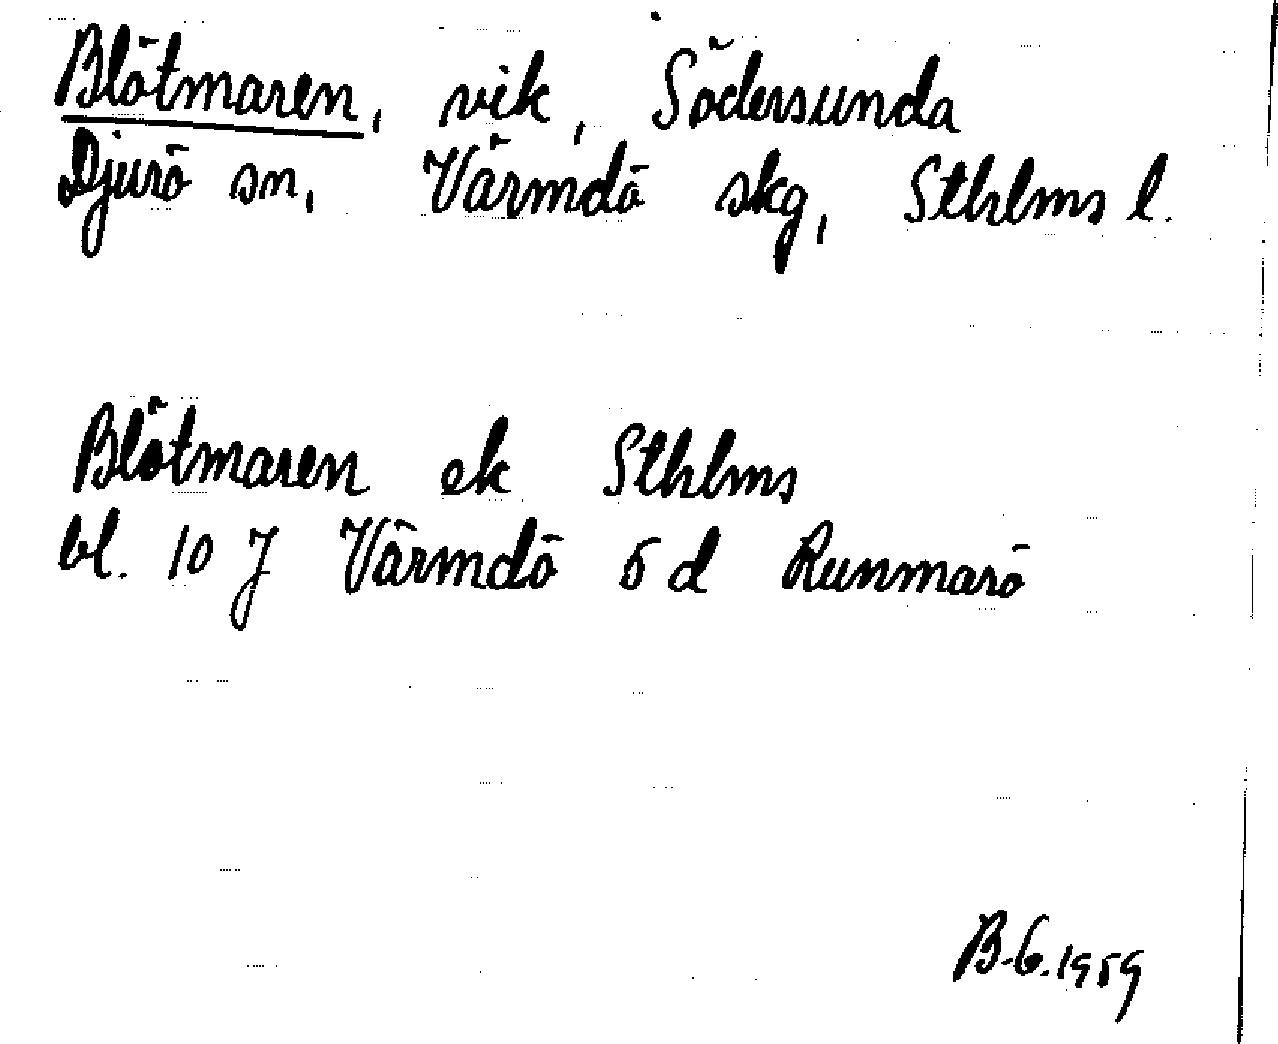 Blötmaren, vik, Södersunda
Djurö sn, Värmdö skg, Sthlms l.
Blötmaren ek Sthlms
bl. 10 J Värmdö 5 d Runmarö
B-G. 1959